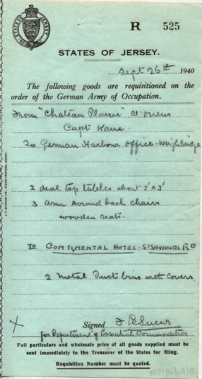 R 525
STATES OF JERSEY.
Sept 26th 1940
The following goods are requisitioned on the
order of the German Army of Occupation.
From "Chalian Plaisir" St Ouens
Capt Kane
To German Harbour Office - Weighbridge
2 deal top tables about 2' x 3'
3 arm round back chairs
wooden seats.
To CONTINENTAL HOTEL - ST SAVIOURS Rd
2 Metal Dust bins with Covers
X
Signed
for Department of Essential Commodities
Full particulars and wholesale price of all goods supplied must be
sent immediately to the Treasurer of the States for filing.
Requisition Number must be quoted.